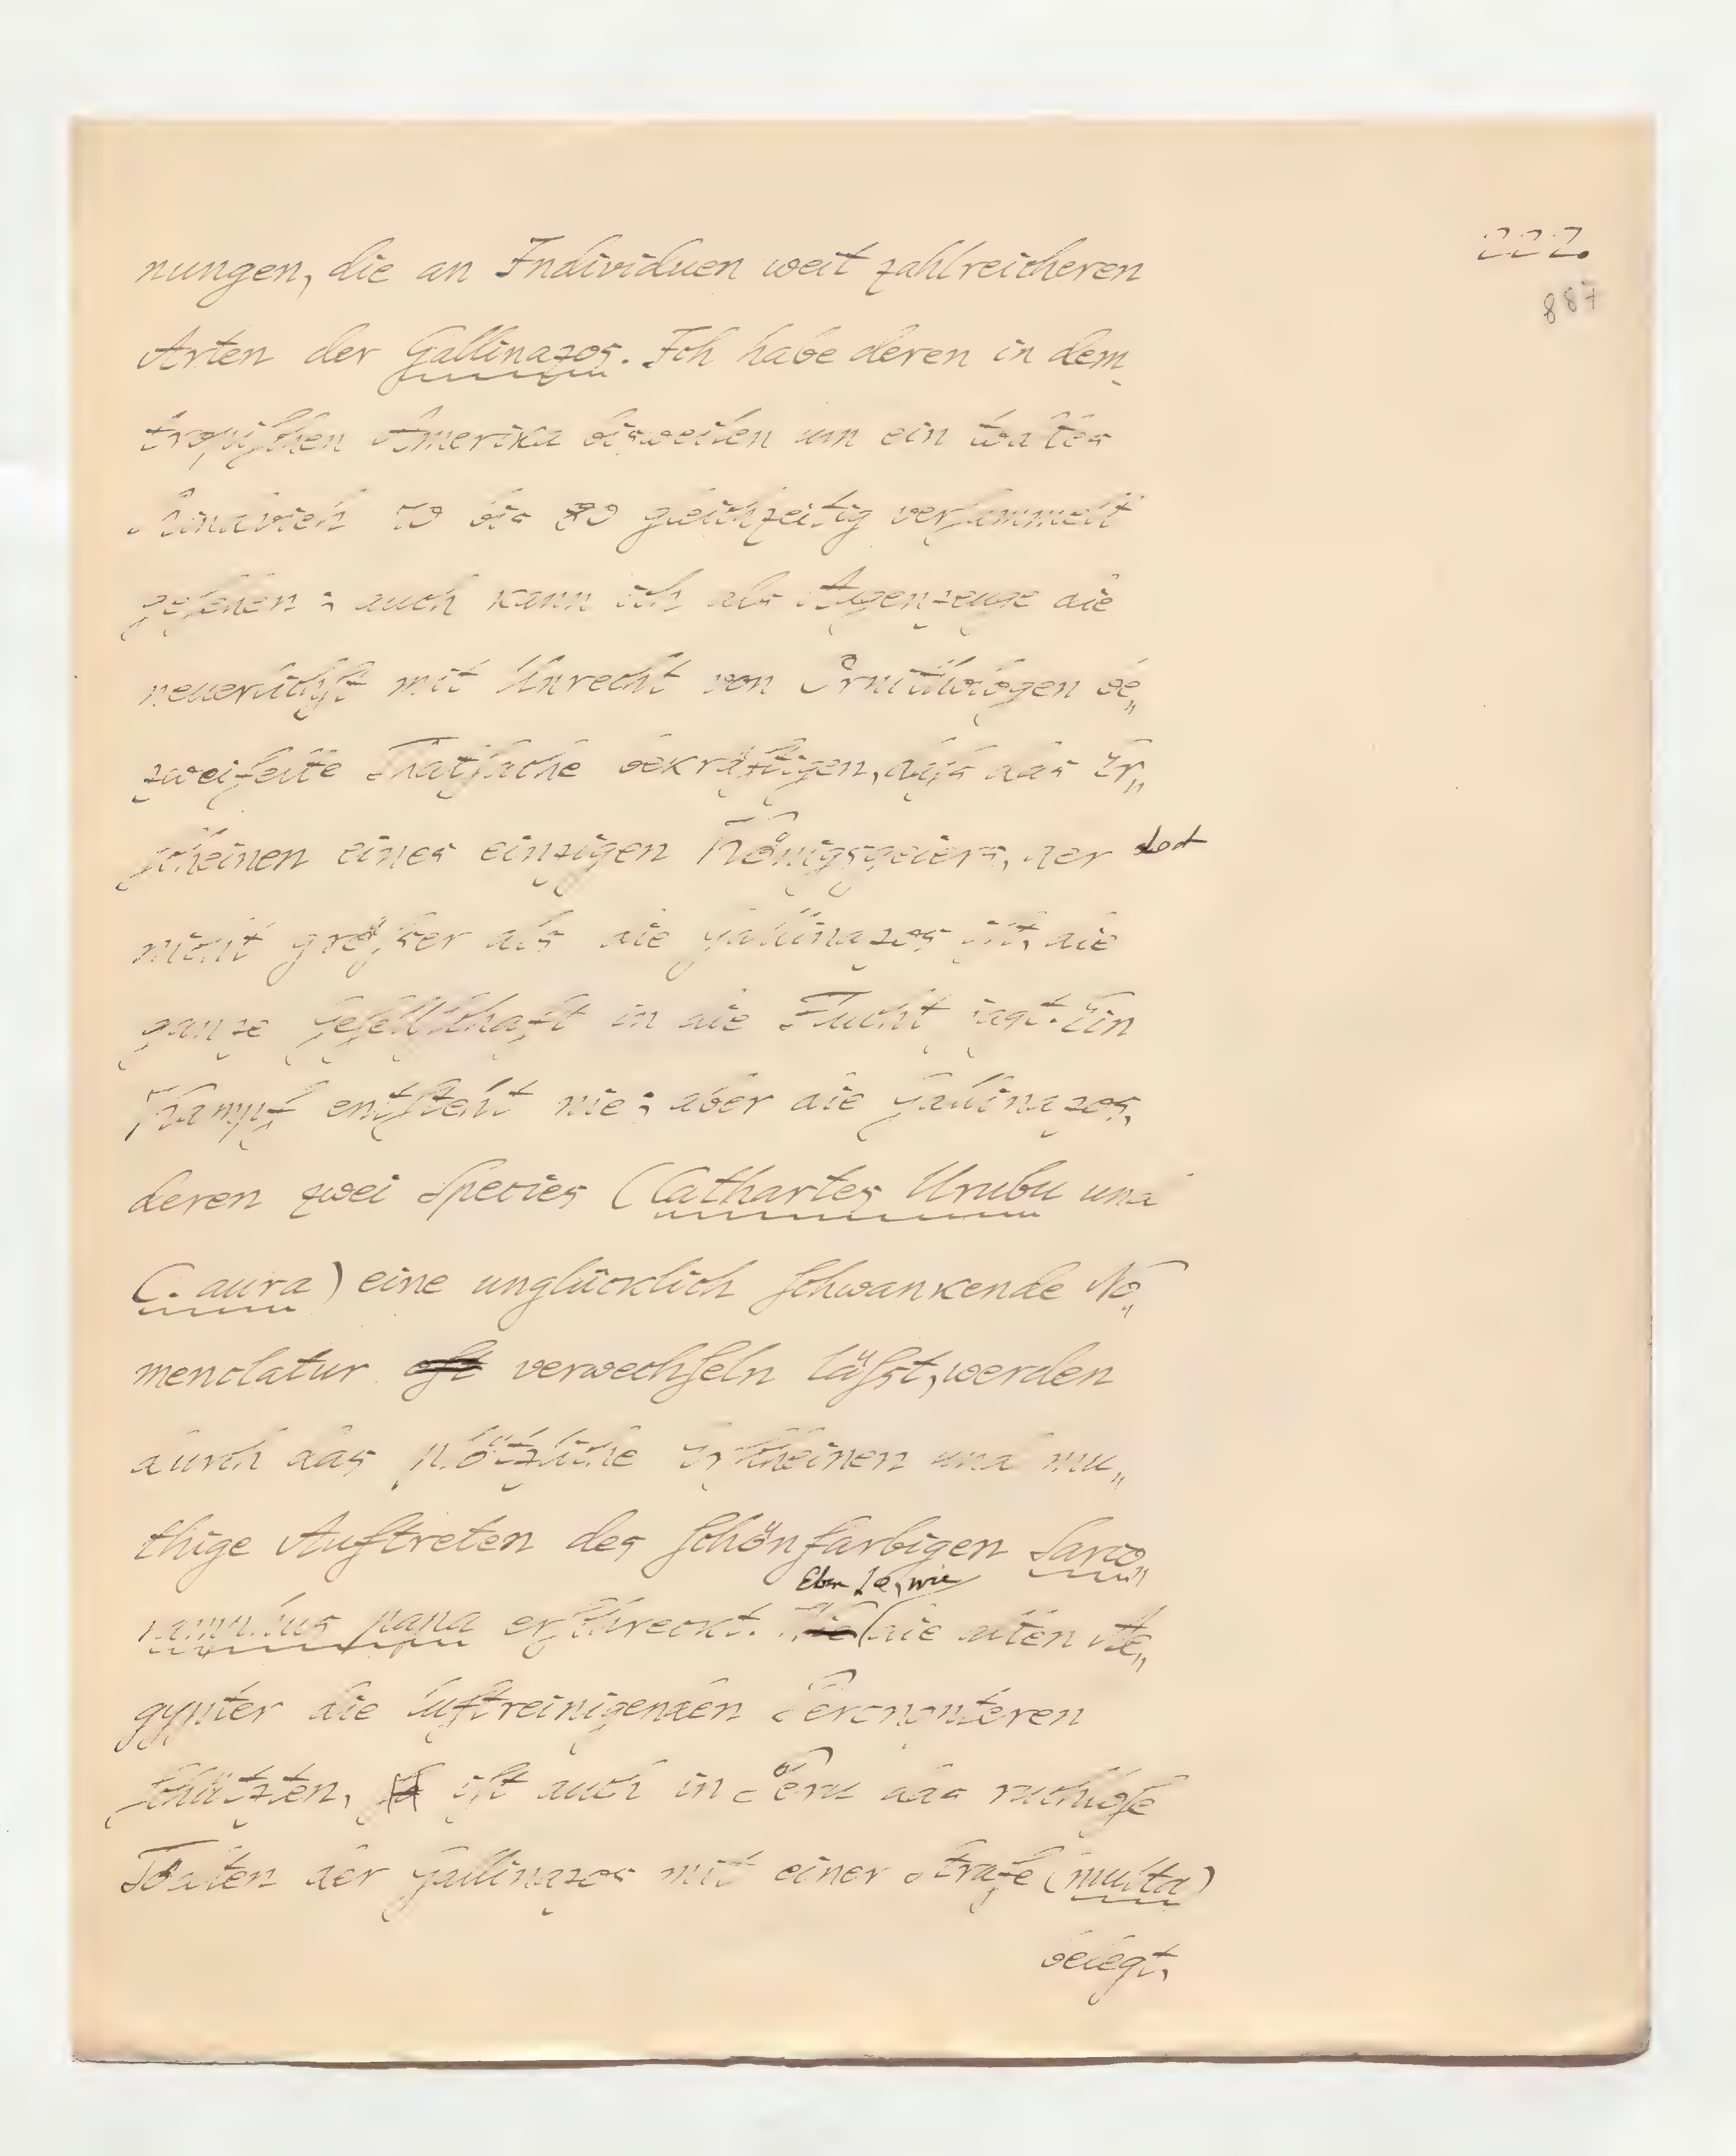 222.
887
nungen, die an Individuen weit zahlreicheren
Arten der Gallinazos. Ich habe deren in dem
tropiſchen Amerika bisweilen um ein todtes
Rindvieh 70 bis 80 gleichzeitig verſammelt
geſehen; auch kann ich als Augenzeuge die
neuerlichſt mit Unrecht von Ornithologen be„
zweifelte Thatſache bekräftigen, daſs das Er„
ſcheinen eines einzigen Königsgeiers, der doch
nicht gröſser als die Gallinazos iſt, die
ganze Geſellſchaft in die Flucht jagt. Ein
Kampf entſteht nie; aber die Gallinazos,
deren zwei Species (Cathartes Urubu und
C. aura) eine unglücklich ſchwankende No„
menclatur oft verwechſeln läſst, werden
durch das plötzliche Erſcheinen und mu„
thige Auftreten des ſchönfarbigen Sarco„
Eben ſo, wie
ramphus papa erſchreckt. Wie die alten Ae„
gypter die luftreinigenden Percnopteren
ſchützten, ſo iſt auch in Perú das ruchloſe
Tödten der Gallinazos mit einer Strafe (multa)
belegt,